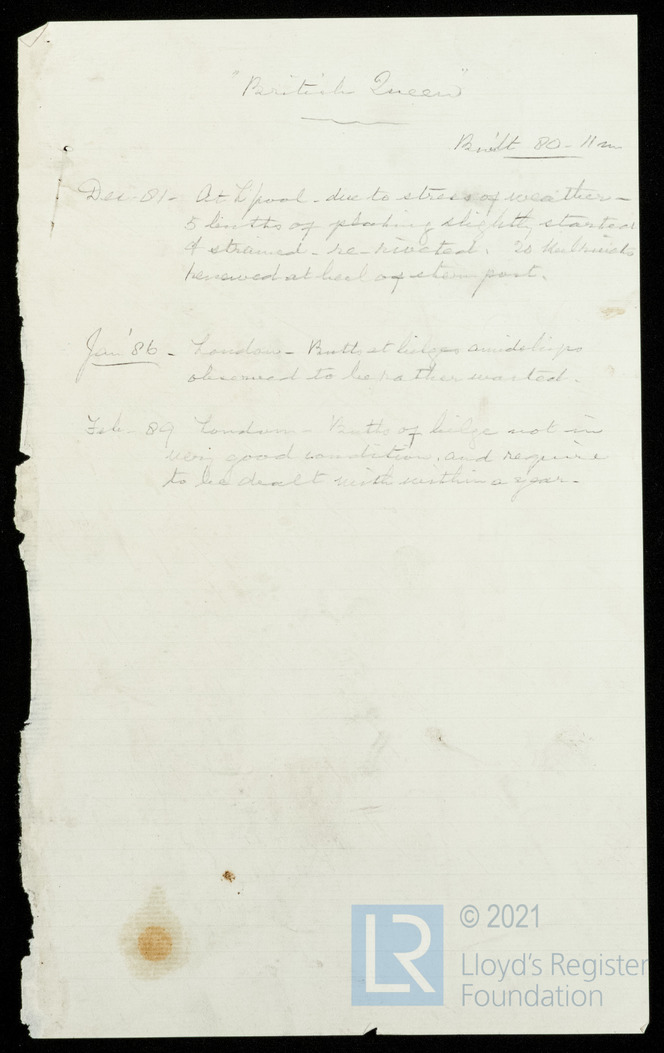 "British Queen"
Built 80 - 11 m
Dec 81 - At L'pool - due to stress of weather -
5 lenths of plating slightly started
& strained - re-riveted. 20 keel rivets
renewed at heel of stern post.
Jan '86 - London - Butts at bilges amidships
observed to be rather wasted.
Feb - 89 London - Butts of bilge not in
very good condition, and require
to be dealt with within a year -
LR
© 2021
Lloyd's Register
Foundation